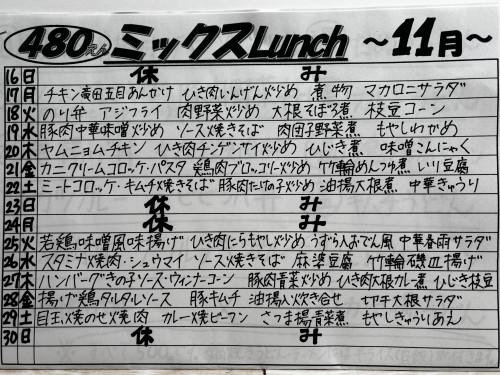 480えん ミックスLunch ～11月～
16日 休み
17月 チキン黄田五目あんかけ ひき肉いんげん炒め 煮物 マカロニサラダ
18火 のり弁 アジフライ 肉野菜炒め 大根そぼろ煮 枝豆コーン
19水 豚肉中華味噌炒め ソース焼きそば 肉団子野菜煮 もやしわかめ
20木 ヤムニョムチキン ひき肉チンゲンサイ炒め ひじき煮 味噌こんにゃく
21金 カニクリームコロッケ・パスタ 鶏肉ブロッコリー炒め 竹輪めんつゆ煮 いり豆腐
22土 ミートコロッケ・キムチ焼きそば 豚肉たけの子炒め 油揚大根煮 中華きゅうり
23日 休み
24月 休み
25火 若鶏味噌風味揚げ ひき肉にらもやし炒め うずら入おでん風 中華春雨サラダ
26水 スタミナ焼肉・シュウマイ ソース焼きそば 麻婆豆腐 竹輪磯皿揚げ
27木 ハンバーグきの子ソース・ウィンナーコーン 豚肉青菜炒め ひき肉大根カレー煮 ひじき枝豆
28金 揚げ鶏タルタルソース 豚キムチ 油揚入炊き合せ 切干大根サラダ
29土 目玉焼のせ焼肉 カレー焼ビーフン さつま揚青菜煮 もやしきゅうりあえ
30日 休み